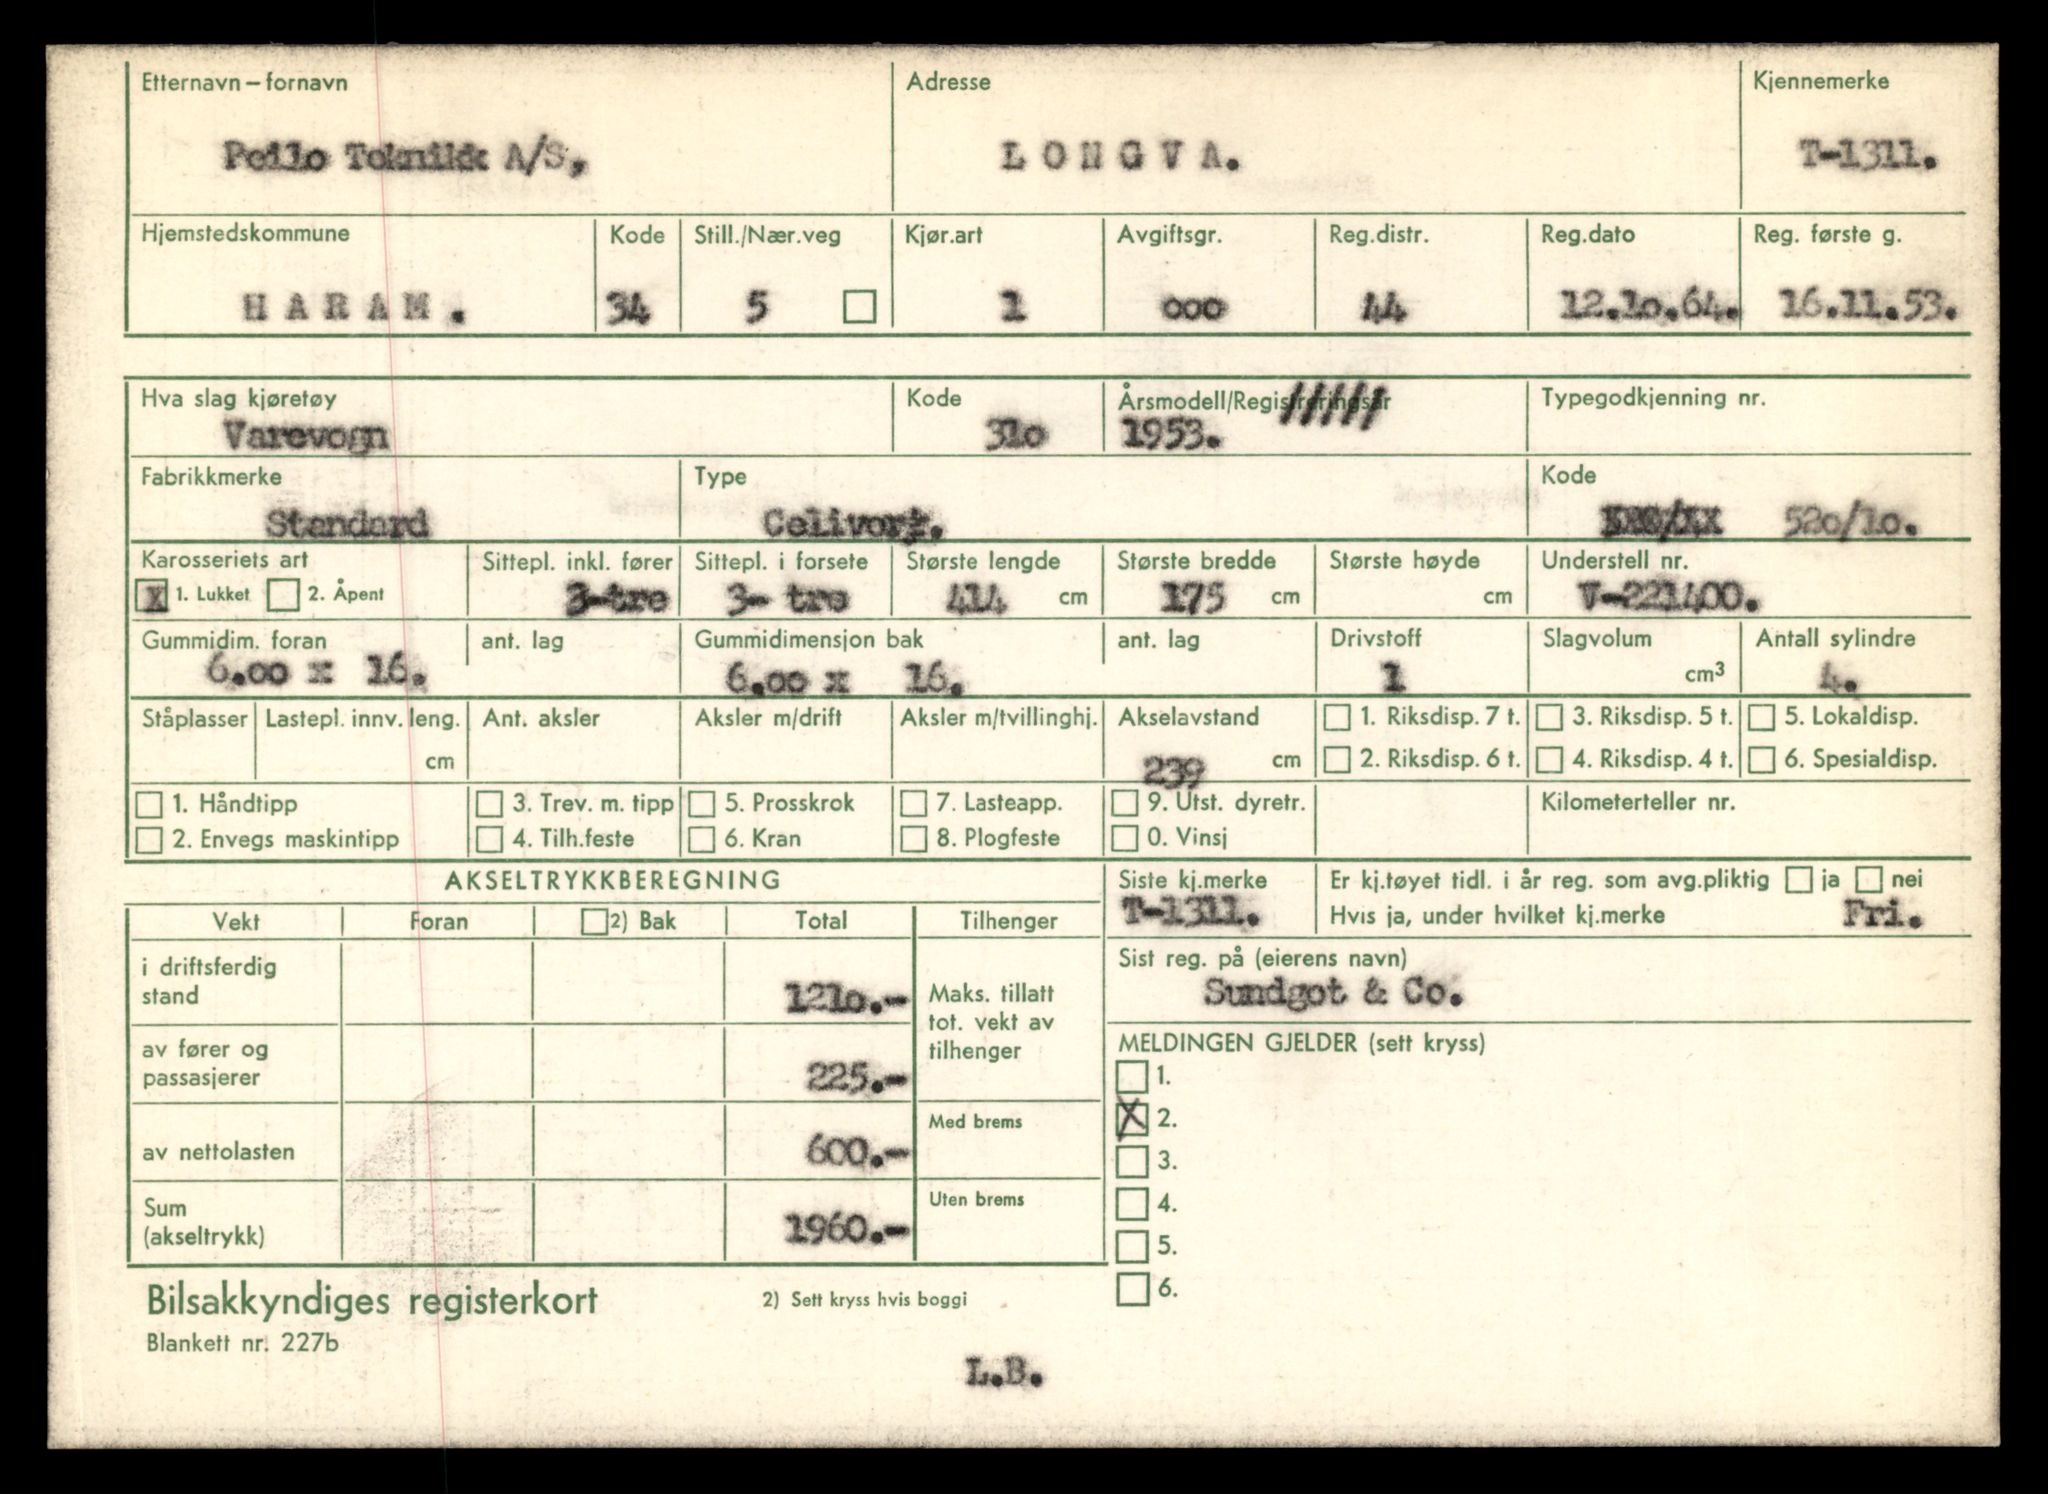 Etternavn – fornavn Adresse Kjennemerke
Peilo Teknikk A/S, LONGVA. T-1311.
Hjemstedskommune Kode Still./Nær.veg Kjør.art Avgiftsgr. Reg.distr. Reg.dato Reg. første g.
HARAM. 34 5 1 ooo 44 12.1o.64. 16.11.53.
Hva slag kjøretøy Kode Årsmodell/Registreringsår Typegodkjenning nr.
Varevogn 31o 1953.
Fabrikkmerke Type Kode
Standard 52o/1o.
Karosseriets art Sittepl. inkl. fører Sittepl. i forsete Største lengde Største bredde Største høyde Understell nr.
X 1. Lukket 2. Åpent 3-tre 3- tre 414 cm 175 cm cm V-221400.
Gummidim. foran ant. lag Gummidimensjon bak ant. lag Drivstoff Slagvolum Antall sylindre
6.oo x 16. 6.oo x 16. 1 cm³ 4.
Ståplasser Lastepl. innv. leng. Ant. aksler Aksler m/drift Aksler m/tvillinghj. Akselavstand 1. Riksdisp. 7 t. 3. Riksdisp. 5 t. 5. Lokaldisp.
cm 239 cm 2. Riksdisp. 6 t. 4. Riksdisp. 4 t. 6. Spesialdisp.
1. Håndtipp 3. Trev. m. tipp 5. Prosskrok 7. Lasteapp. 9. Utst. dyretr. Kilometerteller nr.
2. Envegs maskintipp 4. Tilh.feste 6. Kran 8. Plogfeste 0. Vinsj
AKSELTRYKKBEREGNING Siste kj.merke Er kj.tøyet tidl. i år reg. som avg.pliktig ja nei
T-1311. Hvis ja, under hvilket kj.merke Fri.
Vekt Foran 2) Bak Total Tilhenger
Sist reg. på (eierens navn)
Sundgot & Co.
i driftsferdig
stand 121o.-
Maks. tillatt
tot. vekt av
tilhenger
MELDINGEN GJELDER (sett kryss)
av fører og
passasjerer 225.-
1.
X 2.
Med brems
av nettolasten 600.-
3.
Uten brems
4.
Sum
(akseltrykk) 1960.-
5.
6.
Bilsakkyndiges registerkort 2) Sett kryss hvis boggi
Blankett nr. 227b
L.B.